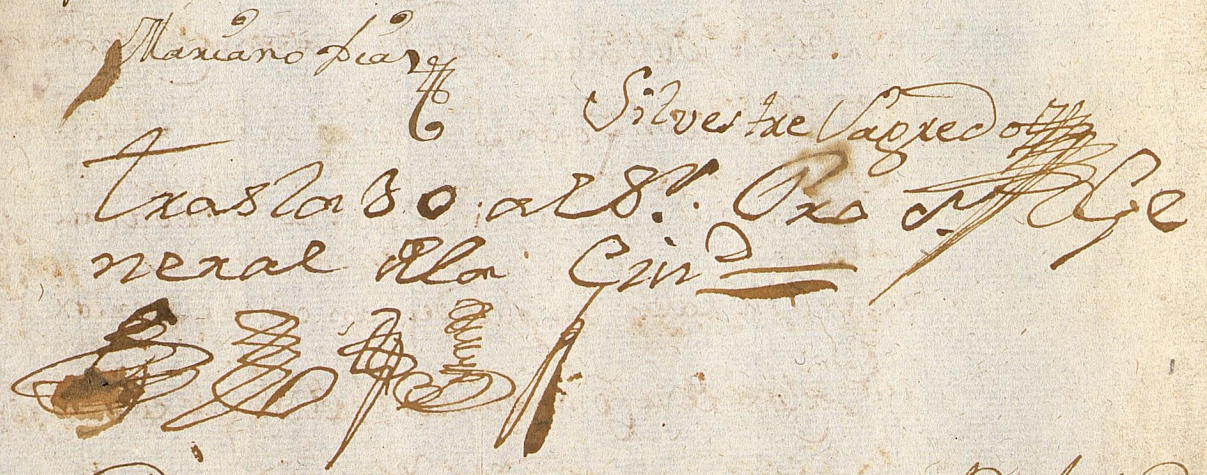 Mariano Diaz
Silvestre Sagredo
Traslado al S.r Pro d.r Ge
neral de la Ciud